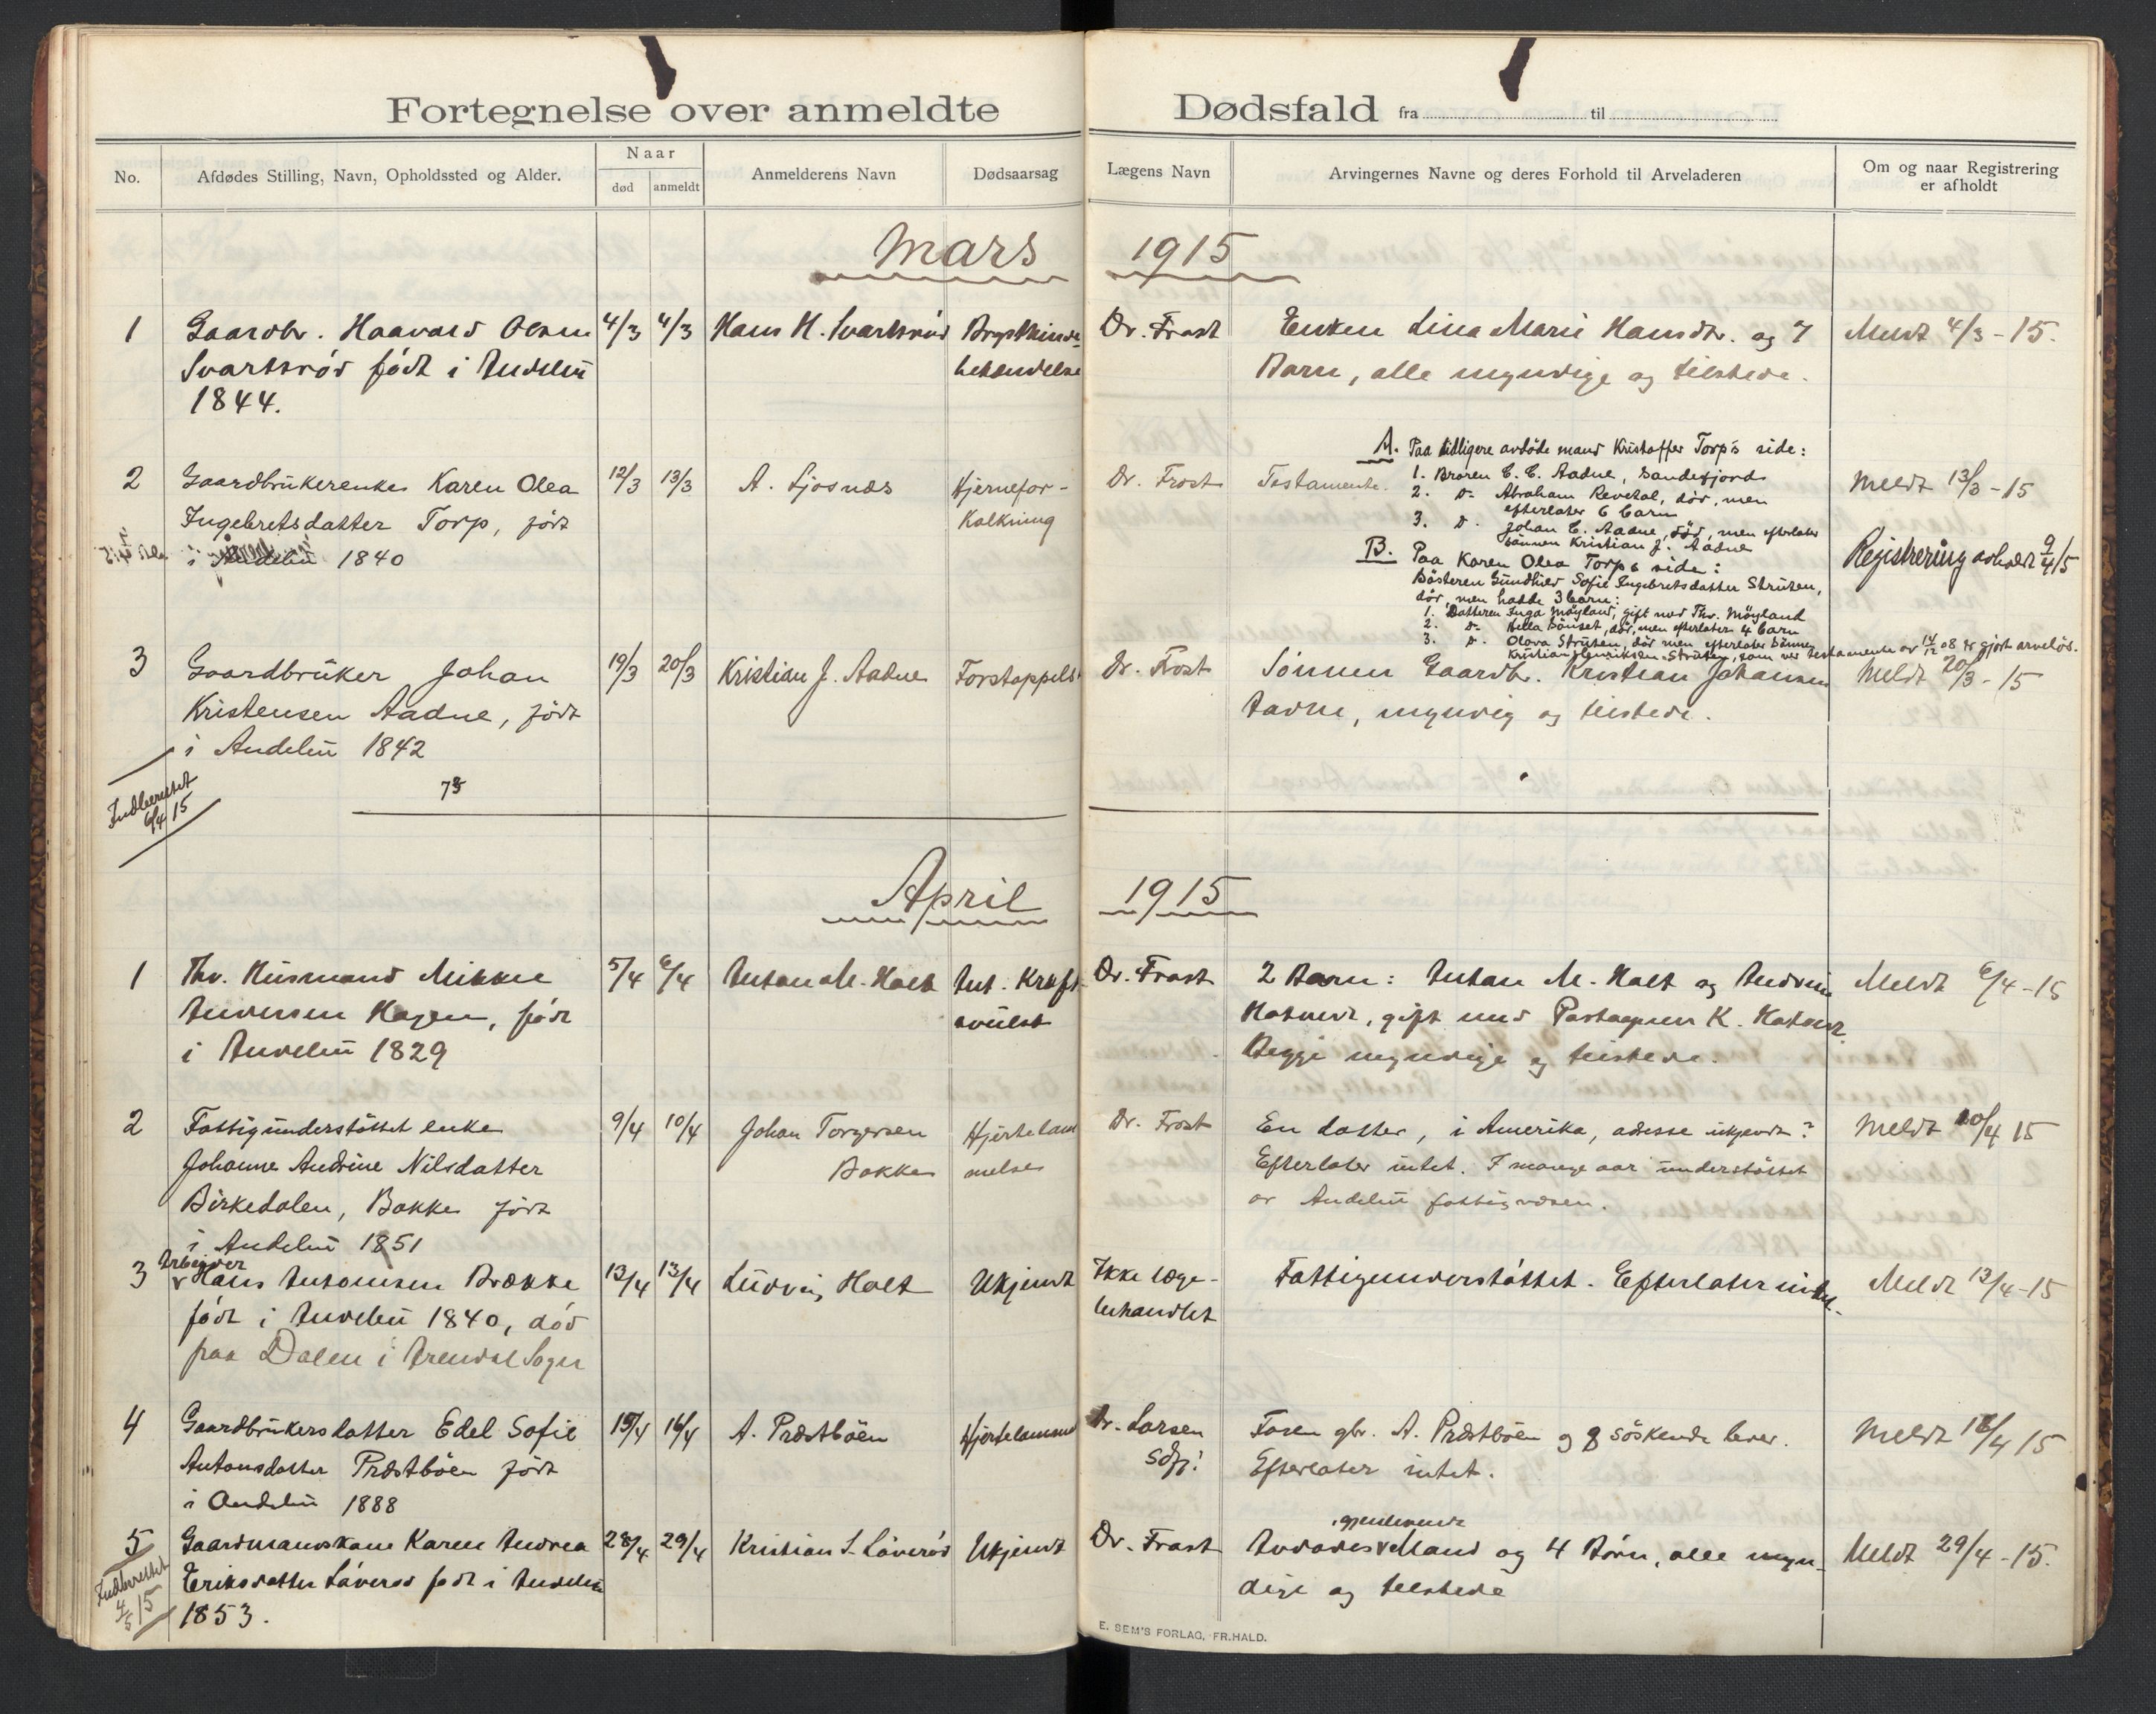 Fortegnelse over anmeldte Dødsfald fra til
No. Afdødes Stilling, Navn, Opholdssted og Alder. Naar død anmeldt Anmelderens Navn Dødsaarsag Lægens Navn Arvingernes Navne og deres Forhold til Arveladeren Om og naar Registrering er afholdt
Mars 1915
1 Gaardbr. Haavald Olsen 4/3 4/3 Hans H. Svartsrød Dr. Frost Enken Lina Marie Hansdtr. og 7 Meldt 4/3-15.
Svartsrød født i Andebu Barn, alle myndige og tilstede.
1844.
2 Gaardbrukerenke Karen Olea 12/3 13/3 A. Sjosnæs Hjernefor- Dr. Frost Testamente. Meldt 13/3-15
Ingebretsdatter Torp, født Kalkning
i 1840
A. Paa tidligere avdøde mand Kristoffer Torp's side:
1. Broren C. C. Aadne, Sandefjord
2. D- Abraham Revetal, død, men
efterlater 6 barn
3. D. Johan C. Aadne, død, men efterlater
sönnen Kristian J. Aadne
B. Paa Karen Olea Torps side:
Sösteren Gundhild Sofie Ingebretsdatter Struten,
död, men hadde 3 barn:
1. Datteren Inga Möyland, gift med Thv. Möyland
2. D- Hella Sönset, död, men efterlater 4 barn
3. D. Olava Struten, död men efterlater sönnen
Kristian Henriksen Struten, som ved testamente av 14/12 08 er gjort arvelös.
Registrering avholdt 9/4 15
3 Gaardbrüker Johan 19/3 20/3 Kristian J. Aadne Forstoppelse Dr. Frost Sönnen Gaardbr. Kristian Johansen Meldt 20/3-15
Kristensen Aadne, född Aadne, myndig og tilstede.
i Andebü 1842
73
Indberettet
6/4 15
April 1915
1 Fhv. Husmand Mikkel 5/4 6/4 Anton M. Holt Ant. Kræft- Dr. Frost 2 Barn: Anton M. Holt og Andrine Meldt 6/4-15
Andersen Hagen, født svulst gift med K.
i Andebu 1829 Begge myndige og tilstede.
2 Fattigünderstöttet enke 9/4 10/4 Johan Torgersen Hjertelam Dr. Frost En datter, i Amerika, adresse ukjendt? Meldt 10/4 15
Johanne Andrine Nilsdatter Bakke melse Efterlater intet. I mange aar understöttet
Birkedalen, Bakke född av Andebü fattigvæsen.
i Andebü 1851
3 Arbeider
Hans Antonisen Brække 13/4 13/4 Ludvig Holt Ukjendt Ikke læge- Fattigunderstøttet. Efterlater intet. Meldt 13/4-15
født i Andebu 1840, død behandlet
paa Dalen i Sogn
4 Gaardbrükersdatter Edel Sofie 15/4 16/4 A. Præstböen Hjertelammelse Dr. Larsen Faren gbr. A. Præstböen og 8 söskende lever. Meldt 16/4 15
Antonsdatter Præstböen född Sdfj! Efterlater intet.
i Andebü 1888
5 Gaardmandskone Karen Andrea 28/4 29/4 Kristian L. Løverød Ukjendt Dr. Frost Avdødes gjenlevende Mand og 4 Børn, alle myn- Meldt 29/4-15.
Eriksdatter Løverød født i Andebu dige og tilstede
1853.
Indberettet
4/5 15
E. SEM'S FORLAG, FR.HALD.